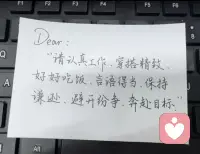 Dear:
"请认真工作、穿搭精致、
好好吃饭、言语得当、保持
谦逊、避开纷争、奔赴目标."